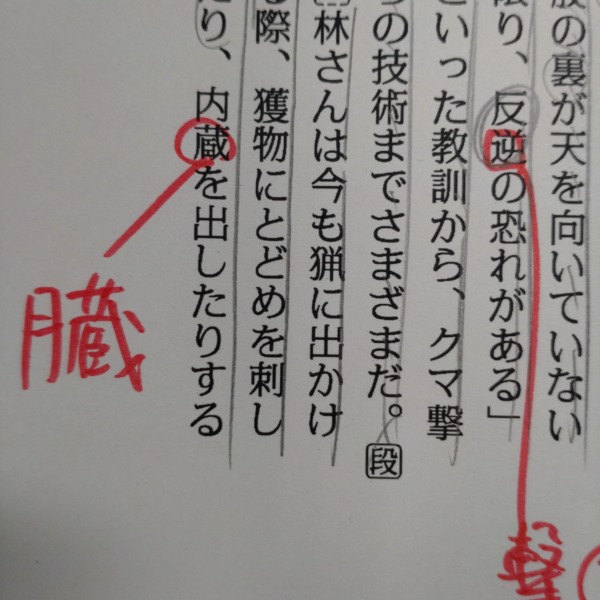 の裏が天を向いていない
限り、反逆の恐れがある」
といった教訓から、クマ撃
の技術までさまざまだ。段
林さんは今も猟に出かけ
際、獲物にとどめを刺し
たり、内蔵を出したりする
臓
撃